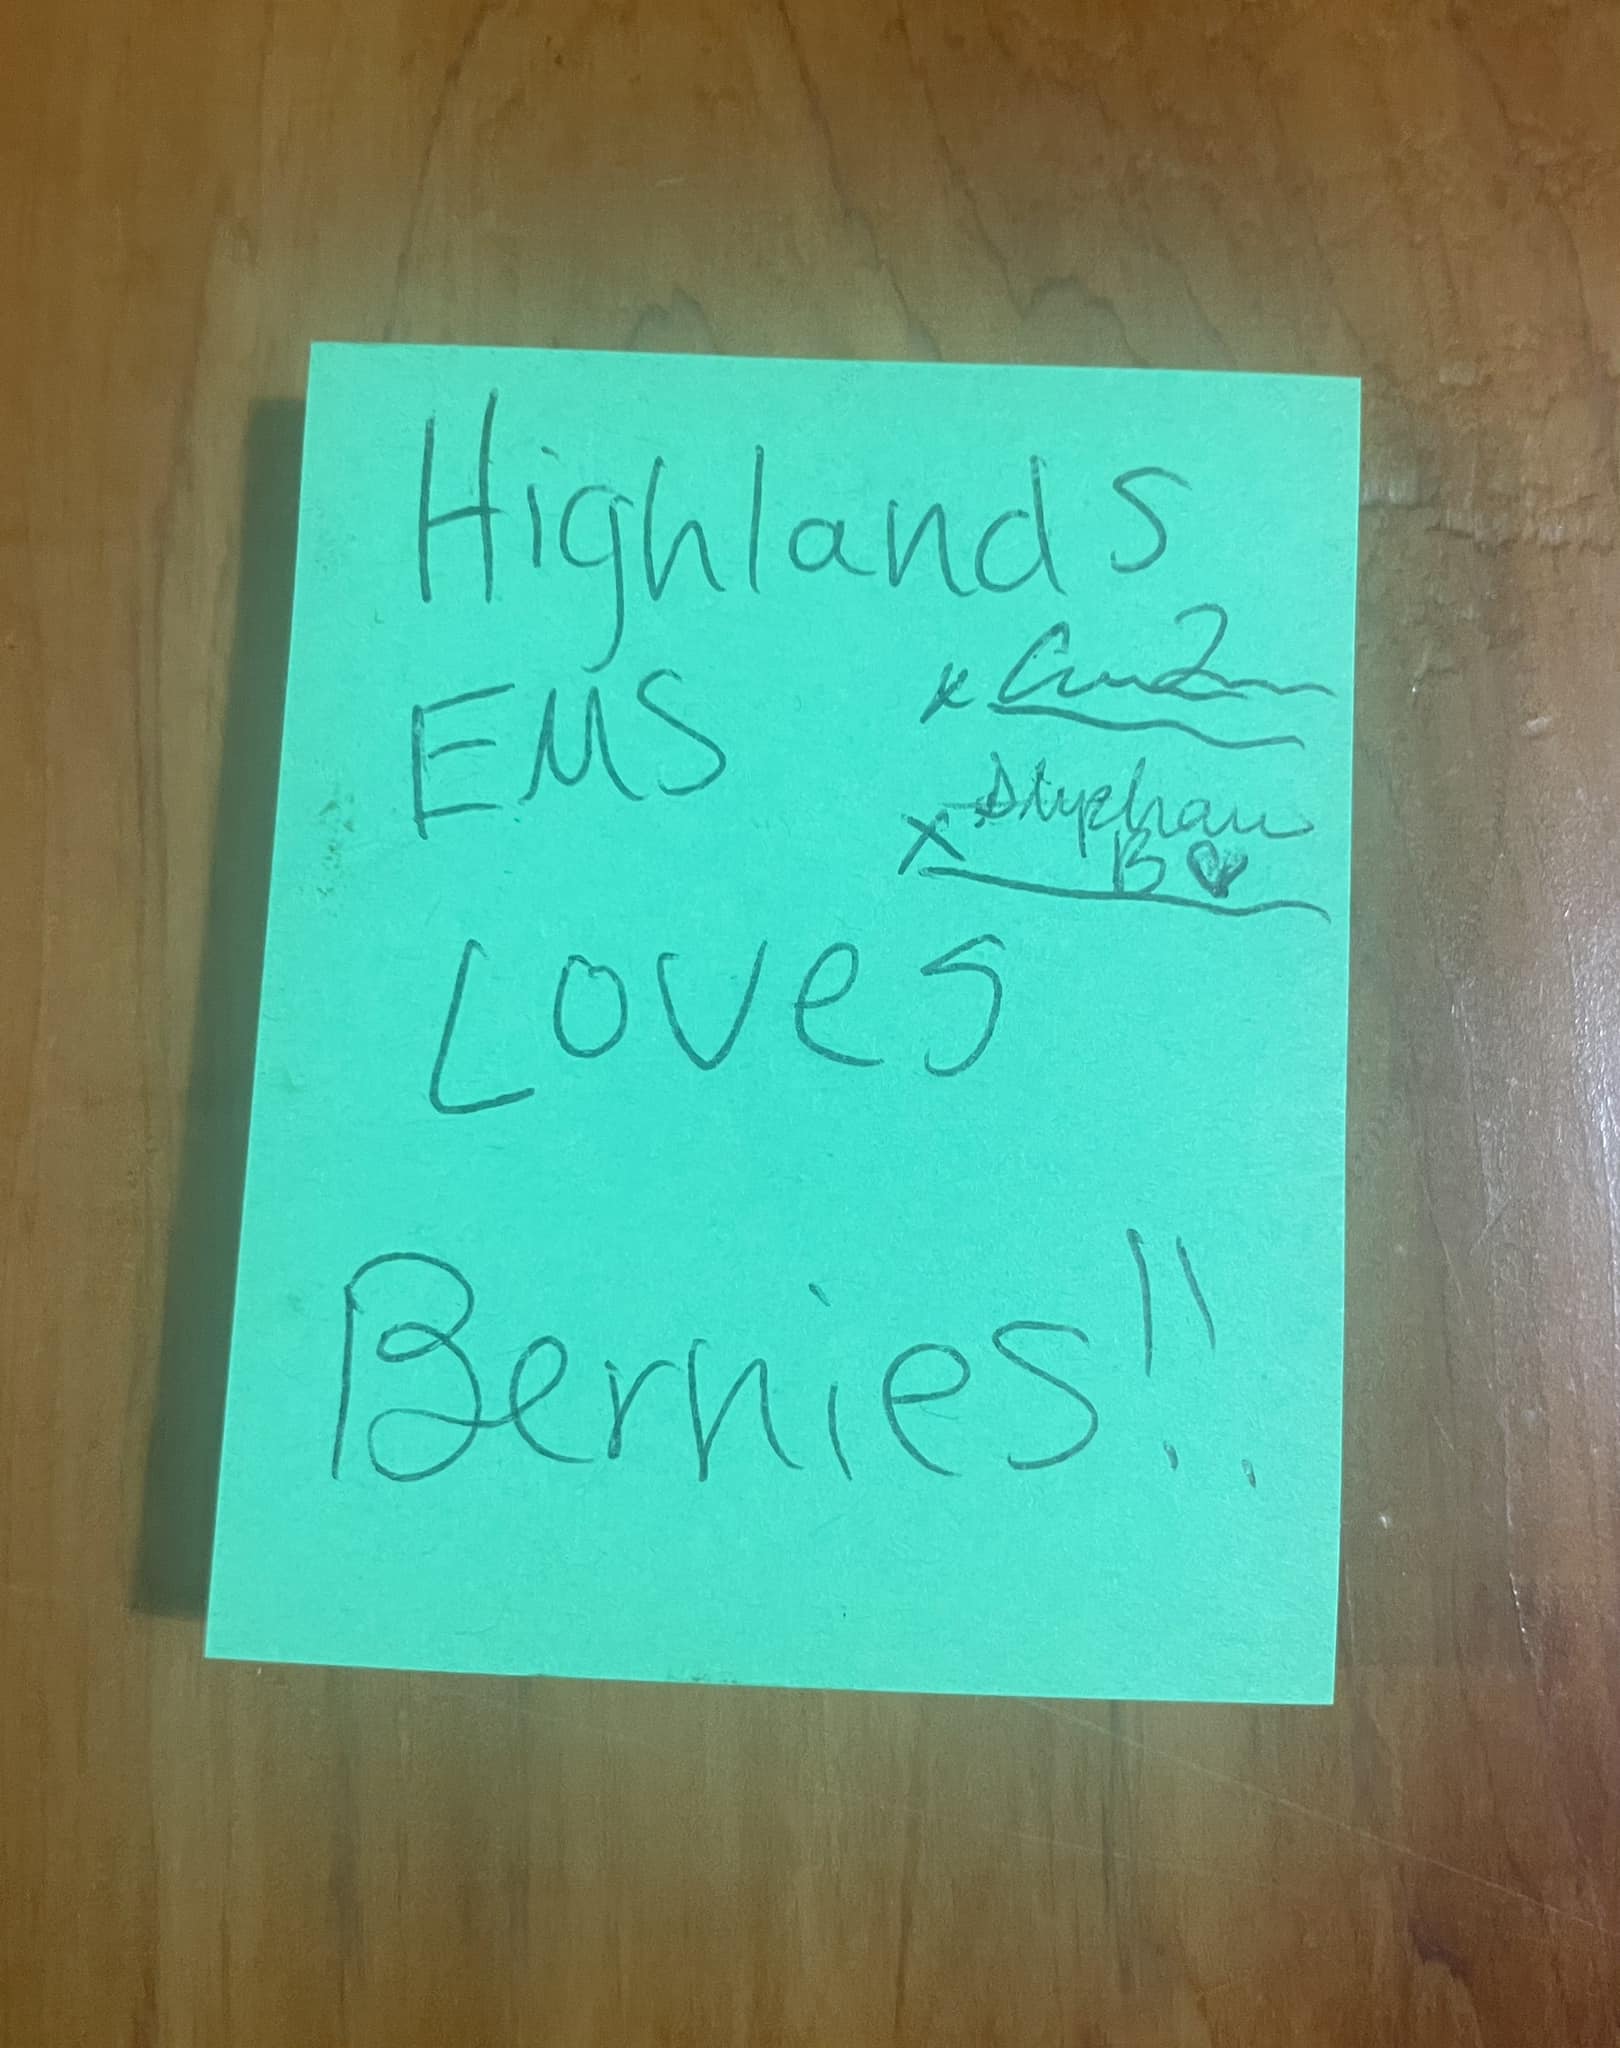 Highlands
EMS
x
X Stephan
B ♥
Loves
Bernies!!